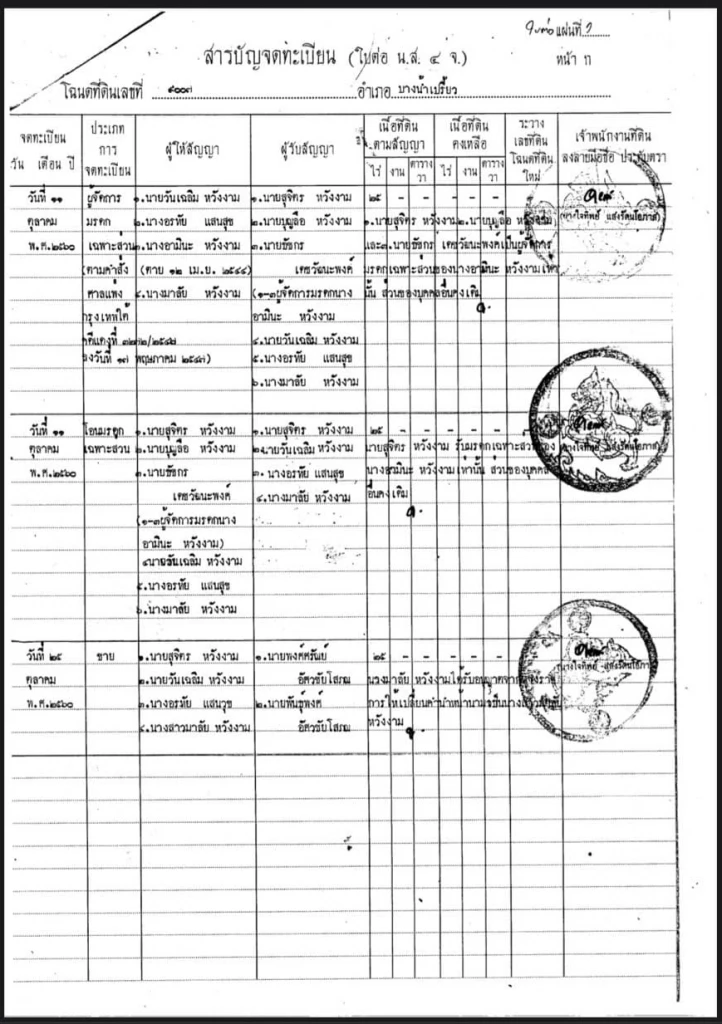 ใบต่อแผ่นที่ ๖
สารบัญจดทะเบียน (ใบต่อ น.ส. ๔ จ.)
หน้า ก
โฉนดที่ดินเลขที่ ๔๐๐๗ อำเภอ บางน้ำเปรี้ยว
จดทะเบียน วัน เดือน ปี
ประเภทการจดทะเบียน
ผู้ให้สัญญา
ผู้รับสัญญา
เนื้อที่ดินตามสัญญา ไร่ งาน ตารางวา
เนื้อที่ดินคงเหลือ ไร่ งาน ตารางวา
ระวาง เลขที่ดิน โฉนดที่ดินใหม่
เจ้าพนักงานที่ดิน ลงลายมือชื่อ ประทับตรา
วันที่ ๑๑ ผู้จัดการ ๑.นายวันเฉลิม หวังงาม ๑.นายสุจิตร หวังงาม ๒๕ - - - - -
ตุลาคม มรดก ๒.นางอรทัย แสนสุข ๒.นายบุญลือ หวังงาม ๑.นายสุจิตร หวังงาม๒.นายบุญลือ หวังงาม (นางใจทิพย์ แสงรัตนโอภาส)
พ.ศ.๒๕๖๐ เฉพาะส่วน ๓.นางอามีนะ หวังงาม ๓.นายธัชกร และ๓.นายธัชกร เตชวัฒนะพงศ์เป็นผู้จัดการ
(ตามคำสั่ง (ตาย ๑๒ เม.ย. ๒๕๔๔) เตชวัฒนะพงศ์ มรดกเฉพาะส่วนของนางอามีนะ หวังงามเท่า
ศาลแพ่ง ๔.นางมาลัย หวังงาม (๑-๓ผู้จัดการมรดกนาง นั้น ส่วนของบุคคลอื่นคงเดิม
กรุงเทพใต้ อามีนะ หวังงาม)
พฤษภาคม ๒๕๔๗) ๔.นายวันเฉลิม หวังงาม
๕.นางอรทัย แสนสุข
๖.นางมาลัย หวังงาม
วันที่ ๑๑ โอนมรดก ๑.นายสุจิตร หวังงาม ๑.นายสุจิตร หวังงาม ๒๕ - - - - -
ตุลาคม เฉพาะส่วน ๒.นายบุญลือ หวังงาม ๒.นายวันเฉลิม หวังงาม นายสุจิตร หวังงาม รับมรดกเฉพาะส่วนของ (นางใจทิพย์ แสงรัตนโอภาส)
พ.ศ.๒๕๖๐ ๓.นายธัชกร ๓. นางอรทัย แสนสุข นางอามีนะ หวังงามเท่านั้น ส่วนของบุคคล
เตชวัฒนะพงศ์ ๔.นางมาลัย หวังงาม อื่นคงเดิม
(๑-๓ผู้จัดการมรดกนาง
อามีนะ หวังงาม)
๔นายวันเฉลิม หวังงาม
๕.นางอรทัย แสนสุข
๖.นางมาลัย หวังงาม
วันที่ ๒๕ ขาย ๑.นายสุจิตร หวังงาม ๑.นายพงศ์ศรัณย์ ๒๕ - - - - -
ตุลาคม ๒.นายวันเฉลิม หวังงาม อัศวชัยโสภณ นางมาลัย หวังงามได้รับอนุญาตจากทางราช (นางใจทิพย์ แสงรัตนโอภาส)
พ.ศ.๒๕๖๐ ๓.นางอรทัย แสนสุข ๒.นายพันธุ์พงศ์ การให้เปลี่ยนคำนำหน้านามเป็นนางสาวมาลัย
๔.นางสาวมาลัย หวังงาม อัศวชัยโสภณ หวังงาม